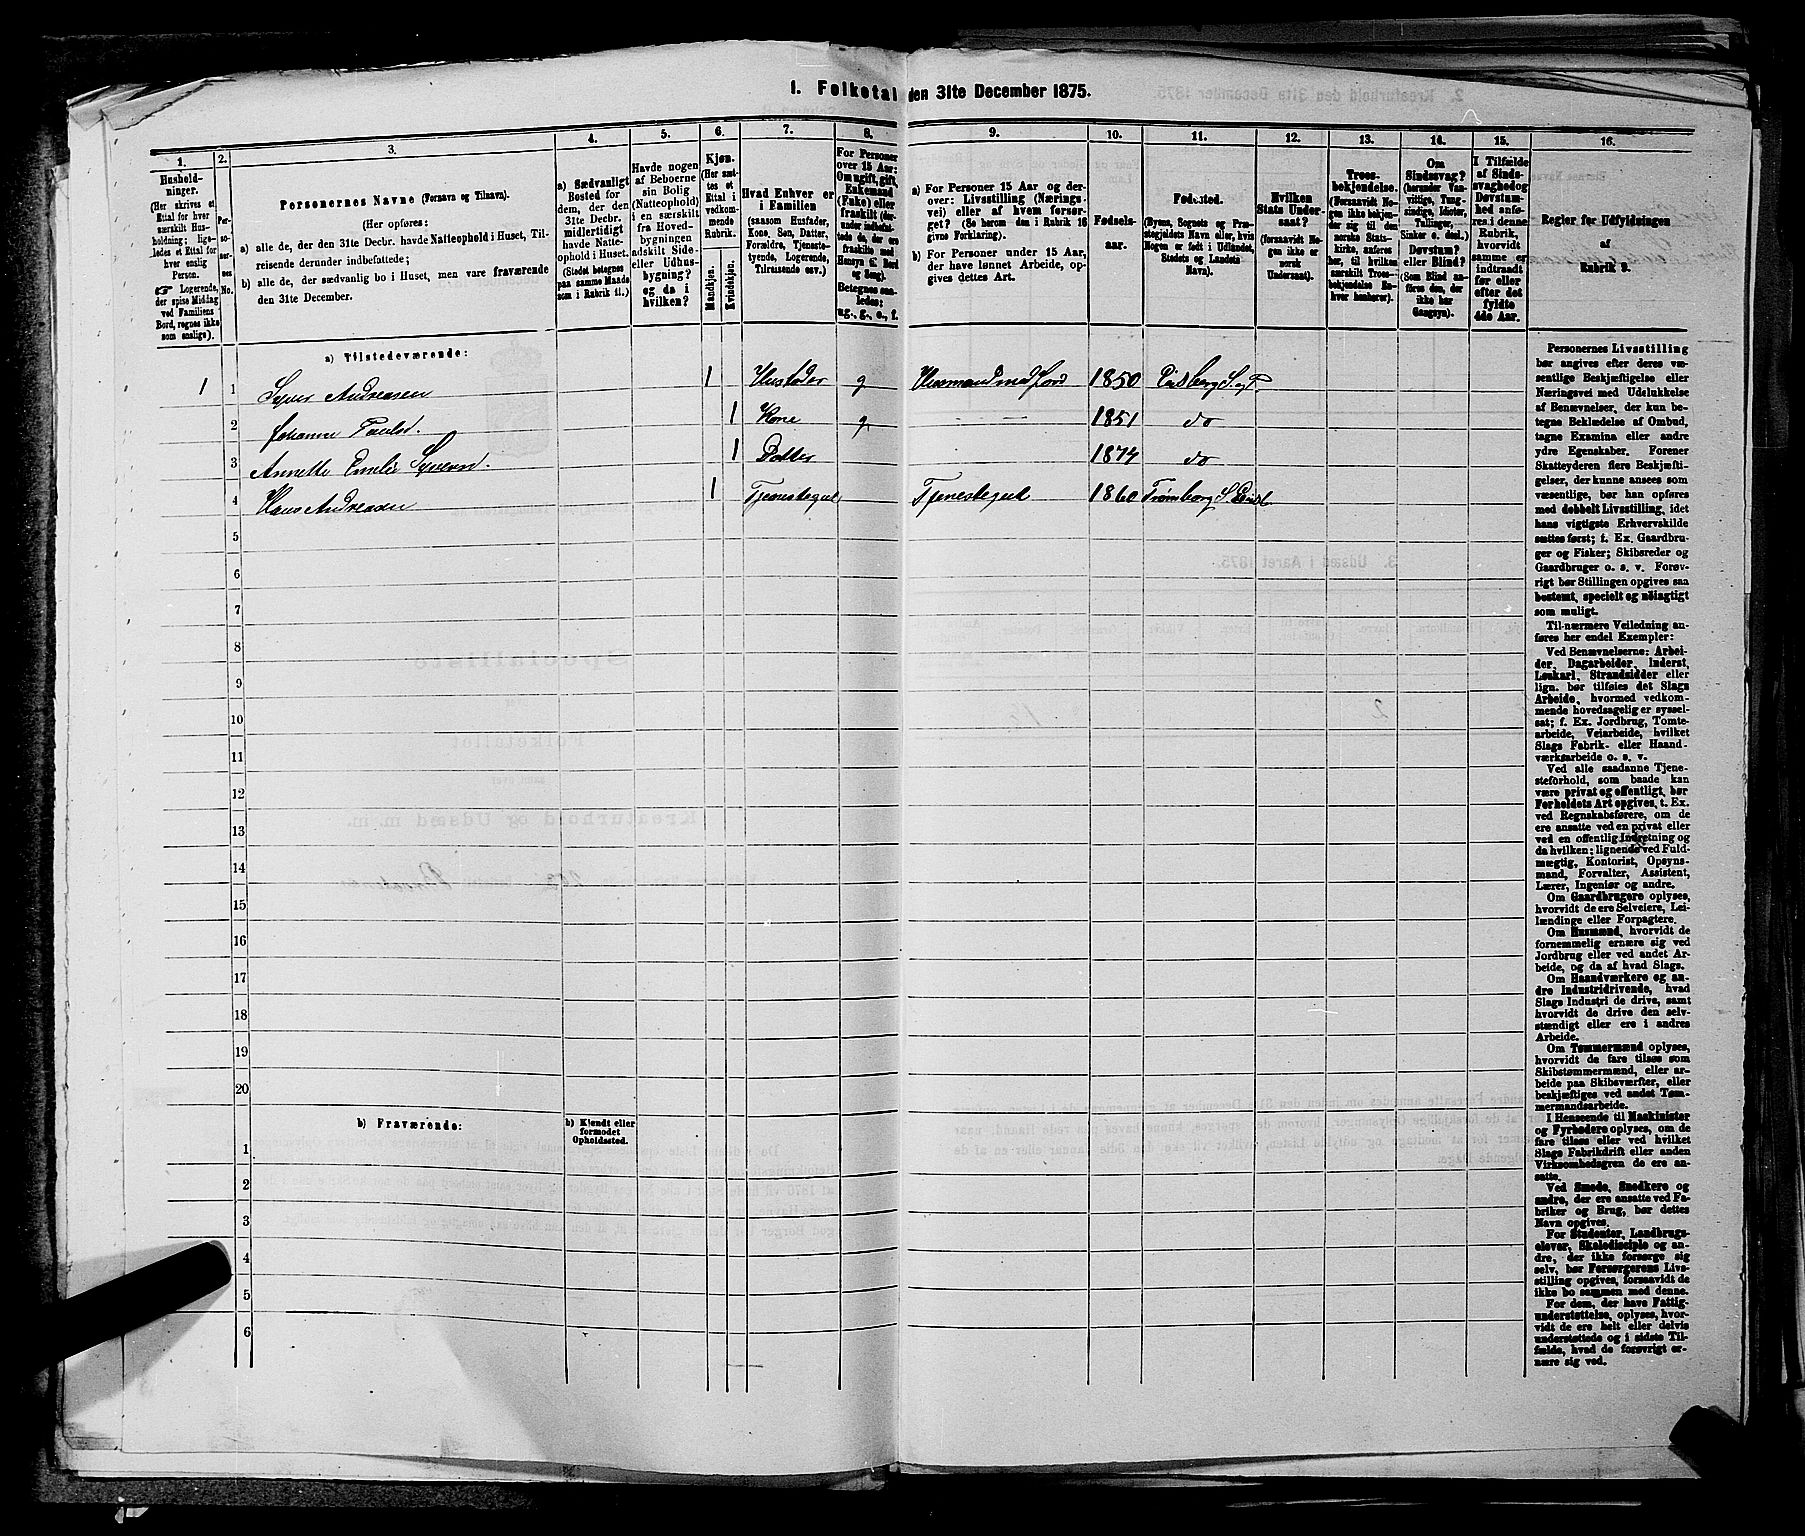 1. Folketal den 31te December 1875.
1. 2. 3. 4. 5. 6. 7. 8. 9. 10. 11. 12. 13. 14. 15. 16.
Husholdninger.
(Her skrives et
Ettal for hver
særskilt Husholdning;
ligeledes et Ettal for
hver enslig
Person.
☞ Logerende,
der spise Middag
ved Familiens
Bord, regnes ikke
som enslige).
Personernes No.
Personernes Navne (Fornavn og Tilnavn).
(Her opføres:
a) alle de, der den 31te Decbr. havde Natteophold i Huset, Tilreisende derunder indbefattede;
b) alle de, der sædvanlig bo i Huset, men vare fraværende
den 31te December.
a) Sædvanligt
Bosted for
dem, der den
31te Decbr.
midlertidigt
havde Natteophold
i Huset.
(Stedet betegnes
paa samme Maade
som i Rubrik 11.)
Havde nogen
af Beboerne
sin Bolig
(Natteophold)
i en særskilt
fra Hovedbygningen
adskilt Side-
eller Udhusbygning?
og da i
hvilken?
Kjøn.
(Her sættes et
Ettal i
vedkommende
Rubrik.
Mandkjøn.
Kvindekjøn.
Hvad Enhver er
i Familien
(saasom Husfader,
Kone, Søn, Datter,
Forældre, Tjenestetyende,
Logerende,
Tilreisende osv.)
For Personer
over 15 Aar:
Om ugift, gift,
Enkemand
(Enke) eller
fraskilt
Betegnes saaledes:
ug., g., e., f.
a) For Personer 15 Aar og derover:
Livsstilling (Næringsvei)
eller af hvem forsørget?
(Se herom den i Rubrik 16
givne Forklaring).
b) For Personer under 15 Aar,
der have lønnet Arbeide, opgives
dettes Art.
Fødselsaar.
Fødested.
(Byens, Sognets og Præstegjeldets
Navn eller, hvis
Nogen er født i Udlandet,
Stedets og Landets
Navn).
Hvilken
Stats Undersaat?
(forsaavidt Nogen
ikke er
norsk
Undersaat).
Troesbekjendelse.
(Forsaavidt Nogen
ikke bekjender
sig til den
norske Statskirke,
anføres
her, til hvilken
særskilt Troesbekjendelse
Enhver
henhører).
Om
Sindssvag?
(herunder Vanvittige,
Tungsindige,
Idioter,
Tullinger,
Sinker o. desl.)
Døvstum?
eller Blind?
(Som Blind anføres
den, der
ikke har
Gangsyn).
I Tilfælde
af Sindssvaghed
og
Døvstumhed
anføres
i denne
Rubrik,
hvorvidt
samme er
indtraadt
før eller
efter det
fyldte
4de Aar.
Regler for Udfyldningen
af
Rubrik 9.
a) Tilstedeværende:
1 1 Syver Andreasen 1 Husfader g Husmand med Jord 1850 Eidsberg S. og P.
2 Johanne Paulsd. 1 Kone g. 1851 do
3 Annette Emilie Syversd. 1 Datter 1874 do
4 Hans Andreasen 1 Tjenestegut Tjenestegut 1860 Trømborg S.
5
6
7
8
9
10
11
12
13
14
15
16
17
18
19
20
b) Fraværende:
b) Kjendt eller
formodet
Opholdssted.
1
2
3
4
5
6
Personernes Livsstilling
bør angives efter deres væsentlige
Beskjæftigelse eller
Næringsvei med Udelukkelse
af Benævnelser, der kun betegne
Beklædelse af Ombud,
tagne Examina eller andre
ydre Egenskaber. Forener
Skatteyderen flere Beskjæftigelser,
der kunne ansees som
væsentlige, bør han opføres
med dobbelt Livsstilling, idet
hans vigtigste Erhvervskilde
sættes først; f. Ex. Gaardbruger
og Fisker; Skibsreder og
Gaardbruger o. s. v. Forøvrigt
bør Stillingen opgives saa
bestemt, specielt og nøiagtigt
som muligt.
Til nærmere Veiledning anføres
her endel Exempler:
Ved Benævnelserne: Arbeider,
Dagarbeider, Inderst,
Løskarl, Strandsidder eller
lign. bør tilføies det Slags
Arbeide, hvormed vedkommende
hovedsagelig er sysselsat;
f. Ex. Jordbrug, Tomtearbeide,
Veiarbeide, hvilket
Slags Fabrik- eller Haandværksarbeide
o. s. v.
Ved alle saadanne Tjenesteforhold,
som baade kan
være privat og offentligt, bør
Forholdets Art opgives, t. Ex.
ved Regnskabsførere, om de
ere ansatte ved en privat eller
ved en offentlig Indretning og
da hvilken; lignende ved Fuldmægtig,
Kontorist, Opsynsmand,
Forvalter, Assistent,
Lærer, Ingeniør og andre.
Om Gaardbrugere oplyses,
hvorvidt de ere Selveiere, Leilændinge
eller Forpagtere.
Om Husmænd, hvorvidt de
fornemmelig ernære sig ved
Jordbrug eller ved andet Arbeide,
og da af hvad Slags.
Om Haandværkere og andre
Industridrivende, hvad
Slags Industri de drive, samt
hvorvidt de drive den selvstændigt
eller ere i andres
Arbeide.
Om Tømmermænd oplyses,
hvorvidt de fare tilsøs som
Skibstømmermænd, eller arbeide
paa Skibsværfter, eller
beskjæftiges ved andet Tømmermandsarbeide.
I Henseende til Maskinister
og Fyrbødere oplyses, om de
fare tilsøs eller ved hvilket
Slags Fabrikdrift eller anden
Virksomhedsgren de ere ansatte.
Ved Smede, Snedkere og
andre, der ere ansatte ved Fabriker
og Brug, bør dettes
Navn opgives.
For Studenter, Landbrugselever,
Skoledisciple og andre,
der ikke forsørge sig
selv, bør Forsørgerens Livsstilling
opgives, forsaavidt de
ikke bo sammen med denne.
For dem, der have Fattigunderstøttelse,
oplyses, hvorvidt
de ere helt eller delvis
understøttede og i sidste Tilfælde,
hvad de forøvrigt ernære
sig ved.